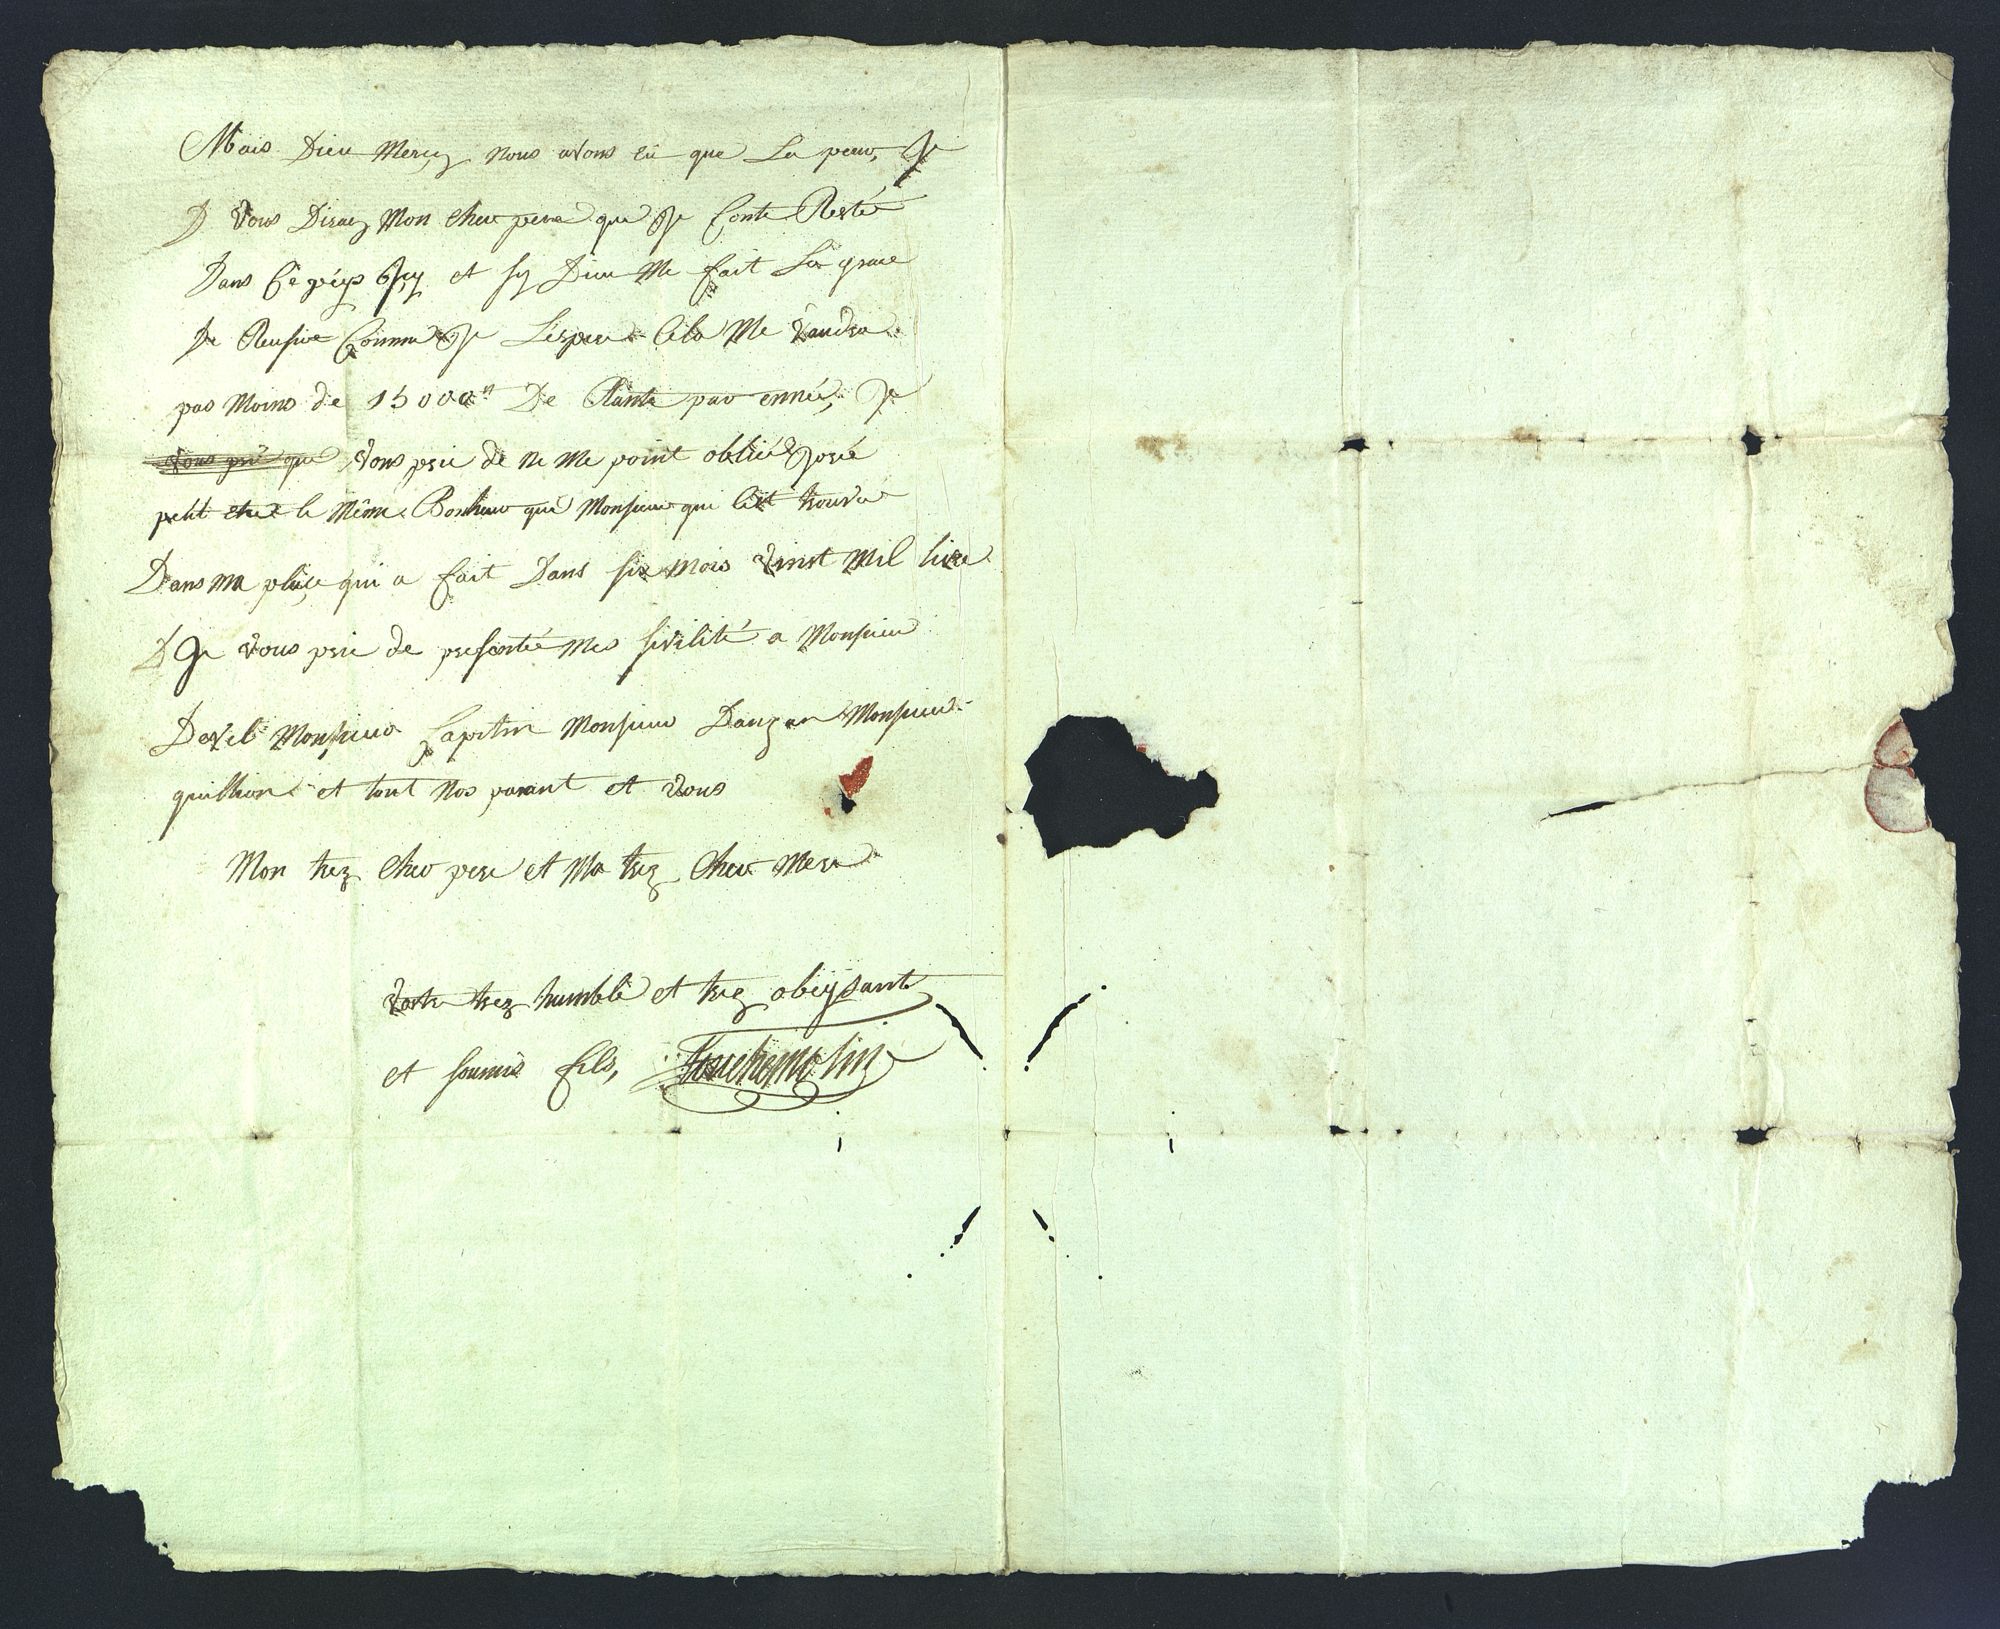 Mais Dieu Mercy nous avons eü que La peur, Je
D vous Diray Mon cher pere que Je Conte Resté
Dans Cé péÿs Jcy et sy Dieu Me fait La grace
De Reusire Comme Je L'espere Cela Me Vaudra
pas Moins de 15000 De Rante par enneé, Je
vous prie que vous prie de ne Me point oblié
petit etre le Même Bonheur que Monsieur qui C'est trouvé
Dans ma plaçe qui a fait Dans six Mois Vinst Mil livre
D Je vous prie de presanté Mes sivilité a Monsieur
Devil Monsieur Monsieur Monsieur
et tout Nos parant et vous
Mon trez Cher pere et Ma trez Cher Mere
Votre trez humble et trez obeÿsante
et soumis fils, Touchemolin